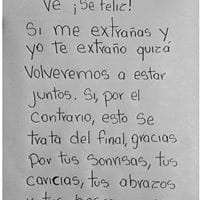 Ve ¡Se feliz!
Si me extrañas y
yo te extraño quizá
Volveremos a estar
juntos. Si, por el
contrario, esto se
trata del final, gracias
por tus sonrisas, tus
caricias, tus abrazos